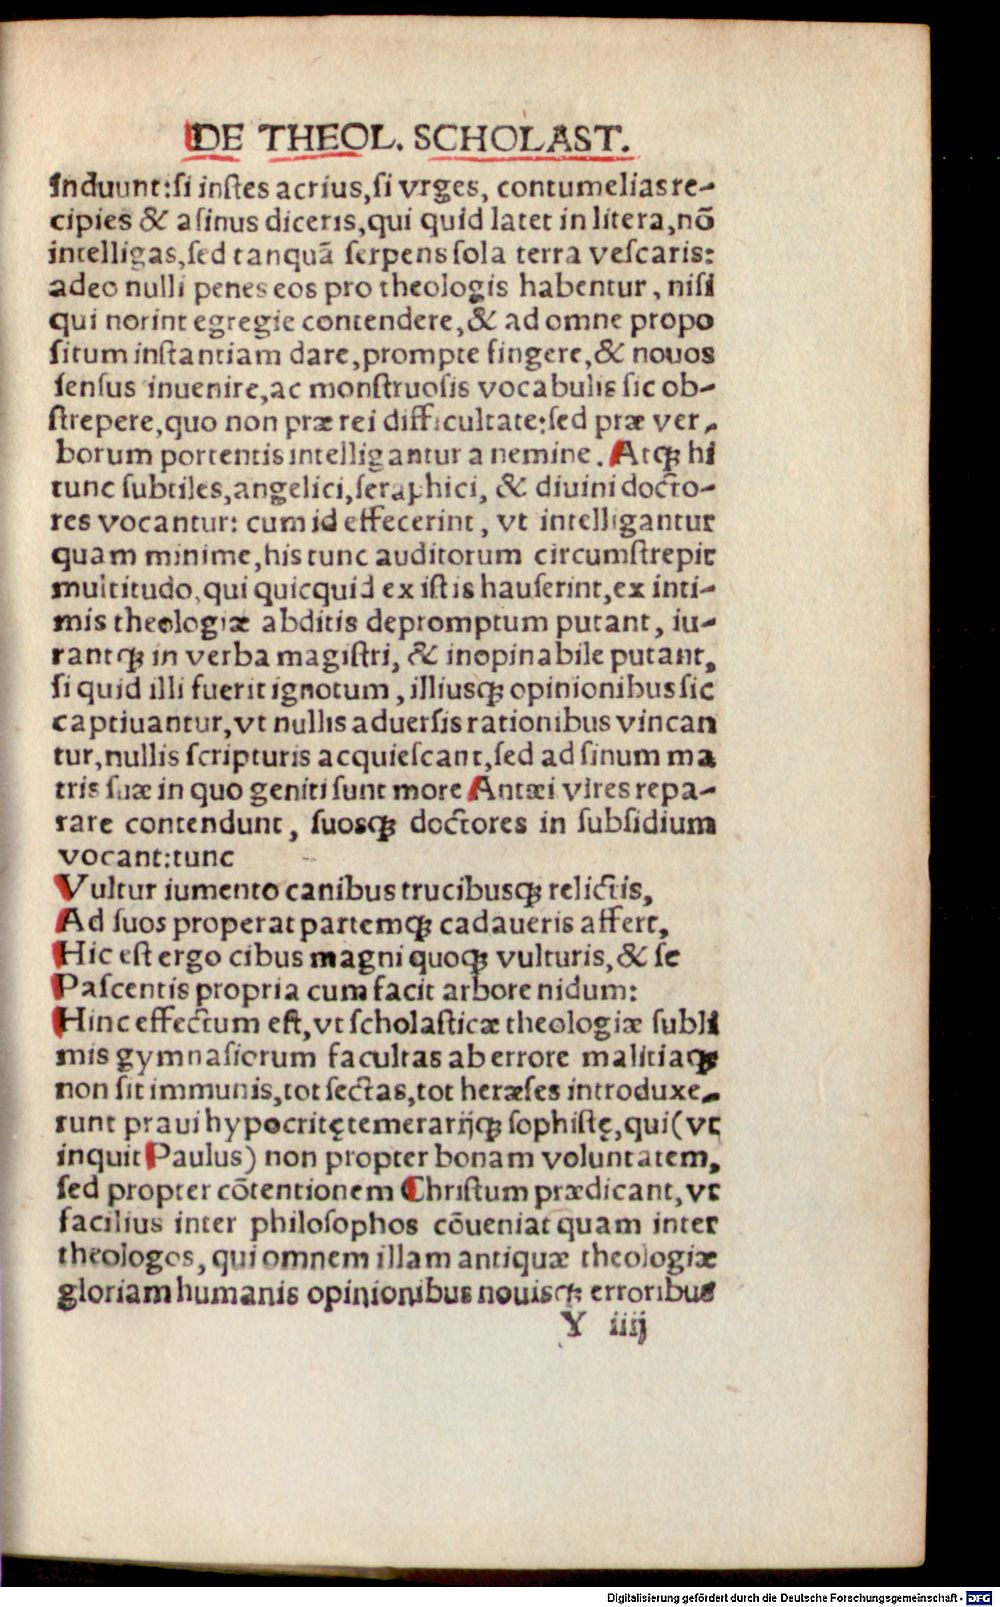 DE THEOL. SCHOLAST.
induunt:si instes acrius,si vrges, contumelias re-
cipies & asinus diceris,qui quid latet in litera,nõ
intelligas,sed tanquã serpens sola terra vescaris:
adeo nulli penes eos pro theologis habentur, nisi
qui norint egregie contendere,& ad omne propo
situm instantiam dare,prompte fingere,& nouos
sensus inuenire,ac monstruosis vocabulis sic ob-
strepere,quo non præ rei difficultate:sed præ ver-
borum portentis intelligantur a nemine. Atqꝫ hi
tunc subtiles,angelici,seraphici, & diuini docto-
res vocantur: cum id effecerint, vt intelligantur
quam minime,his tunc auditorum circumstrepit
multitudo,qui quicquid ex istis hauserint,ex inti-
mis theologiæ abditis depromptum putant, iu-
rantqꝫ in verba magistri, & inopinabile putant,
si quid illi fuerit ignotum, illiusqꝫ opinionibus sic
captiuantur,vt nullis aduersis rationibus vincan
tur,nullis scripturis acquiescant,sed ad sinum ma
tris suæ in quo geniti sunt more Antæi vires repa-
rare contendunt, suosqꝫ doctores in subsidium
vocant:tunc
Vultur iumento canibus trucibusqꝫ relictis,
Ad suos properat partemqꝫ cadaueris affert,
Hic est ergo cibus magni quoqꝫ vulturis,& se
Pascentis propria cum facit arbore nidum:
Hinc effectum est,vt scholasticæ theologiæ subli
mis gymnasiorum facultas ab errore malitiaqꝫ
non sit immunis,tot sectas,tot heræses introduxe-
runt praui hypocritę temerarijqꝫ sophistę,qui(vt
inquit Paulus) non propter bonam voluntatem,
sed propter cõtentionem Christum prædicant,vt
facilius inter philosophos cõueniat quam inter
theologos, qui omnem illam antiquæ theologiæ
gloriam humanis opinionibus nouisqꝫ erroribus
Y iiij
Digitalisierung gefördert durch die Deutsche Forschungsgemeinschaft - DFG